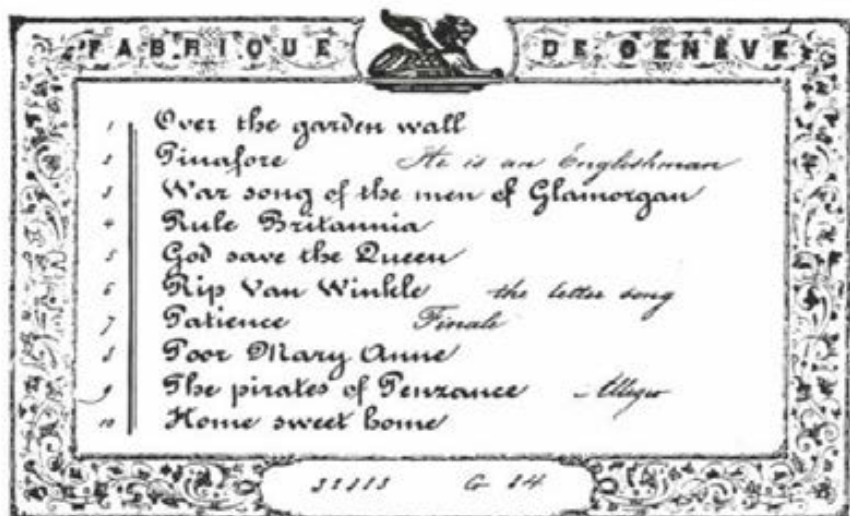 FABRIQUE DE GENÈVE
1 Over the garden wall
2 Pinafore He is an Englishman
3 War song of the men of Glamorgan
4 Rule Britannia
5 God save the Queen
6 Rip Van Winkle the letter song
7 Patience Finale
8 Poor Mary Anne
9 The pirates of Penzance Allegro
10 Home sweet home